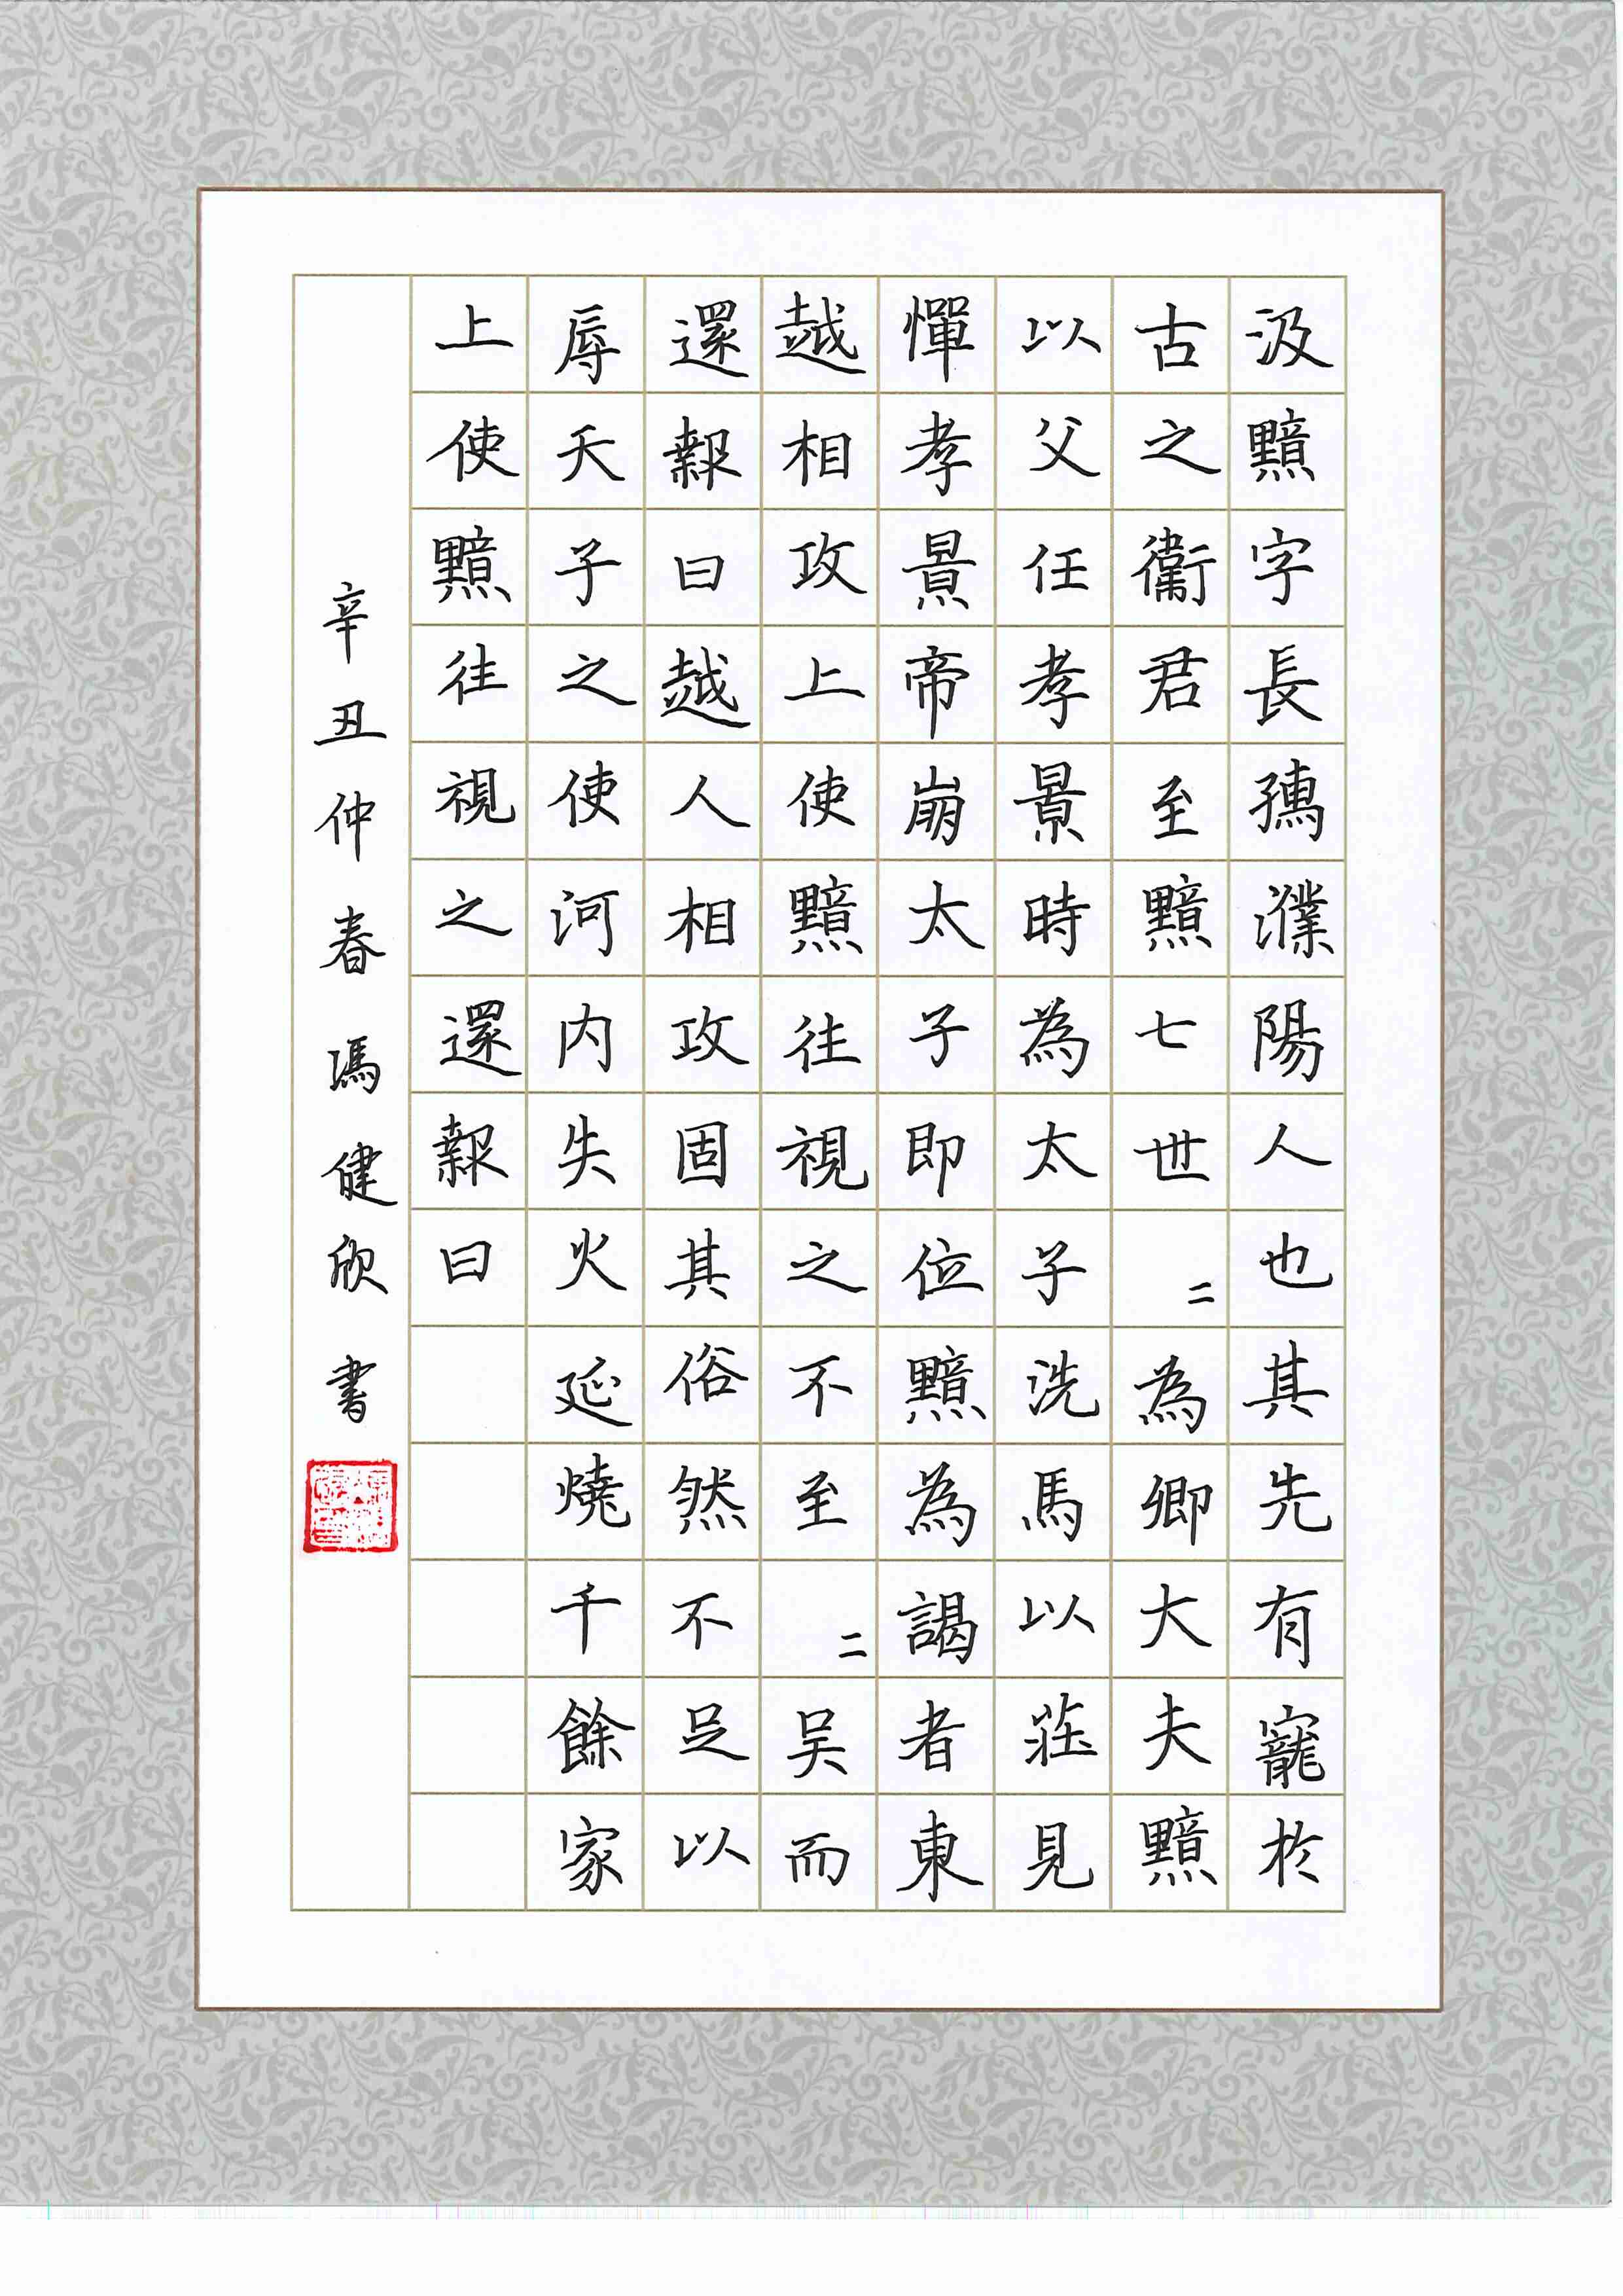 汲黯字長孺濮陽人也其先有寵於
古之衛君至黯七世二為卿大夫黯
以父任孝景時為太子洗馬以莊見
憚孝景帝崩太子即位黯為謁者東
越相攻上使黯往視之不至二吳而
還報曰越人相攻固其俗然不足以
辱天子之使河内失火延燒千餘家
上使黯往視之還報曰
辛丑仲春馮健欣書